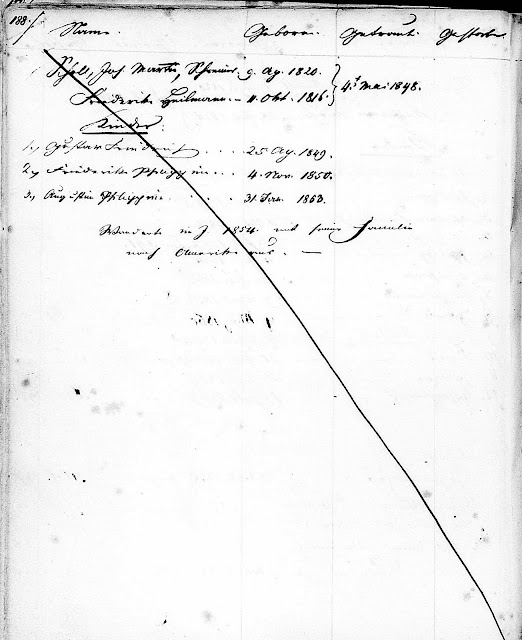 188.
Name. Geboren. Getraut. Gestorben
Scholl, Joh. Martin, Schreiner 9. Ag. 1820. 4t Mai 1848.
Friederike Heilmann 11. Okt. 1816.
Kinder:
1., Gustav Friedrich 25. Ag. 1849.
2., Friederike Philippine 4. Nov. 1850.
3., Augustin Philippine 31. Jan. 1853.
Wanderte im J 1854 mit seiner Familie
nach Amerika aus. —